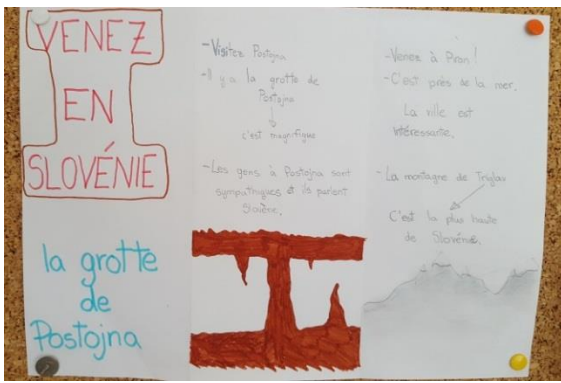 VENEZ
EN
SLOVÉNIE
la grotte
de
Postojna
-Visitez Postojna
-Il y a la grotte de
Postojna
c'est magnifique
-Les gens à Postojna sont
sympathiques et ils parlent
Slovène.
-Venez à Piran!
-C'est près de la mer.
La ville est
intéressante.
-La montagne de Triglav
C'est la plus haute
de Slovénie.